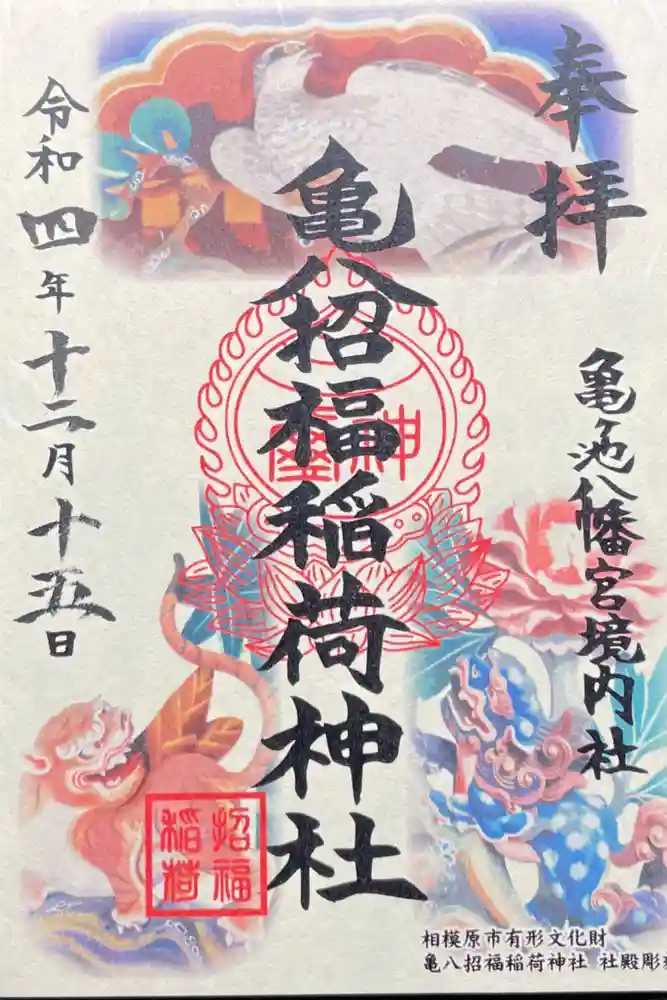 奉拝
亀ヶ池八幡宮境内社
亀八招福稲荷神社
令和四年十二月十五日
神璽
招福
稲荷
相模原市有形文化財
亀八招福稲荷神社 社殿彫